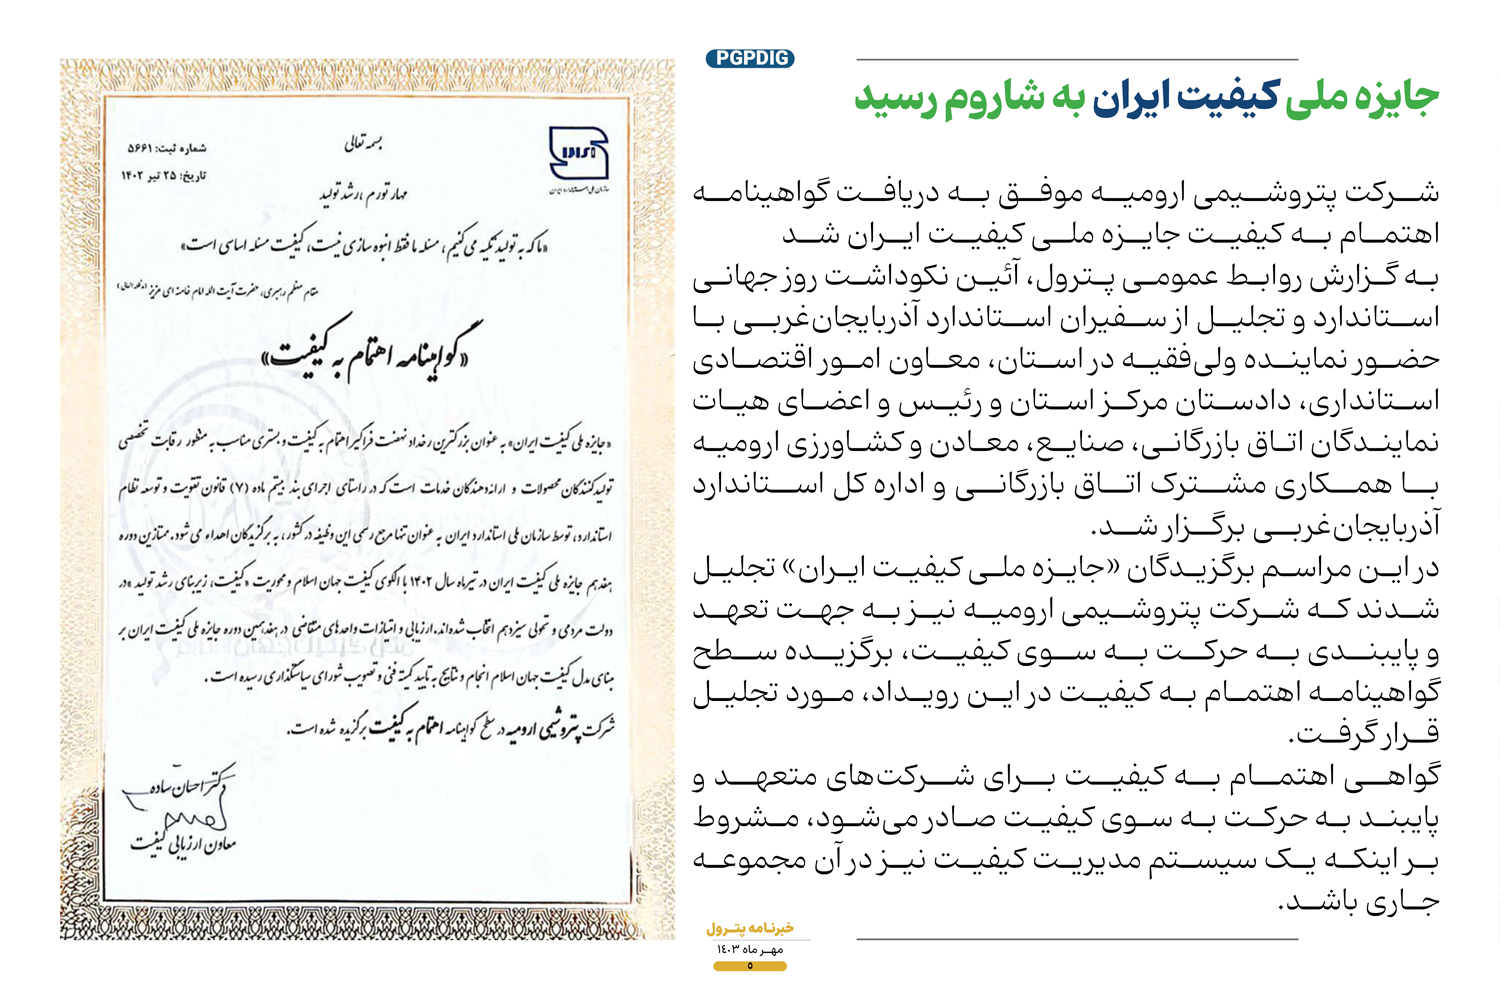 PGPDIG
جایزه ملی کیفیت ایران به شاروم رسید
شرکت پتروشیمی ارومیه موفق به دریافت گواهینامه
اهتمام به کیفیت جایزه ملی کیفیت ایران شد
به گزارش روابط عمومی پترول، آئین نکوداشت روز جهانی
استاندارد و تجلیل از سفیران استاندارد آذربایجان‌غربی با
حضور نماینده ولی‌فقیه در استان، معاون امور اقتصادی
استانداری، دادستان مرکز استان و رئیس و اعضای هیات
نمایندگان اتاق بازرگانی، صنایع، معادن و کشاورزی ارومیه
با همکاری مشترک اتاق بازرگانی و اداره کل استاندارد
آذربایجان‌غربی برگزار شد.
در این مراسم برگزیدگان «جایزه ملی کیفیت ایران» تجلیل
شدند که شرکت پتروشیمی ارومیه نیز به جهت تعهد
و پایبندی به حرکت به سوی کیفیت، برگزیده سطح
گواهینامه اهتمام به کیفیت در این رویداد، مورد تجلیل
قرار گرفت.
گواهی اهتمام به کیفیت برای شرکت‌های متعهد و
پایبند به حرکت به سوی کیفیت صادر می‌شود، مشروط
بر اینکه یک سیستم مدیریت کیفیت نیز در آن مجموعه
جاری باشد.
بسمه تعالی
شماره ثبت: ۵۶۶۱
تاریخ: ۲۵ تیر ۱۴۰۲
سازمان ملی استاندارد ایران
مهار تورم، رشد تولید
«ما که به تولید تکیه می‌کنیم، مسئله ما فقط انبوه سازی نیست، کیفیت مسئله اساسی است»
مقام معظم رهبری، حضرت آیت اله امام خامنه ای عزیز (مدظله العالی)
«گواهینامه اهتمام به کیفیت»
«جایزه ملی کیفیت ایران» به عنوان بزرگترین رخداد نهضت فراگیر اهتمام به کیفیت و بستری مناسب به منظور رقابت تخصصی
تولیدکنندگان محصولات و ارائه‌دهندگان خدمات است که در راستای اجرای بند بیستم ماده (۷) قانون تقویت و توسعه نظام
استاندارد، توسط سازمان ملی استاندارد ایران به عنوان تنها مرجع رسمی این وظیفه در کشور، به برگزیدگان اهداء می‌شود. ممتازین دوره
هفدهم جایزه ملی کیفیت ایران در تیرماه سال ۱۴۰۲ با الگوی کیفیت جهان اسلام و محوریت «کیفیت، زیربنای رشد تولید» در
دولت مردمی و تحولی سیزدهم انتخاب شده‌اند. ارزیابی و امتیازات واحدهای متقاضی در هفدهمین دوره جایزه ملی کیفیت ایران بر
مبنای مدل کیفیت جهان اسلام انجام و نتایج به تایید کمیته فنی و تصویب شورای سیاستگذاری رسیده است.
شرکت پتروشیمی ارومیه در سطح گواهینامه اهتمام به کیفیت برگزیده شده است.
دکتر احسان ساده
معاون ارزیابی کیفیت
خبرنامه پترول
مهر ماه ۱٤۰۳
۵